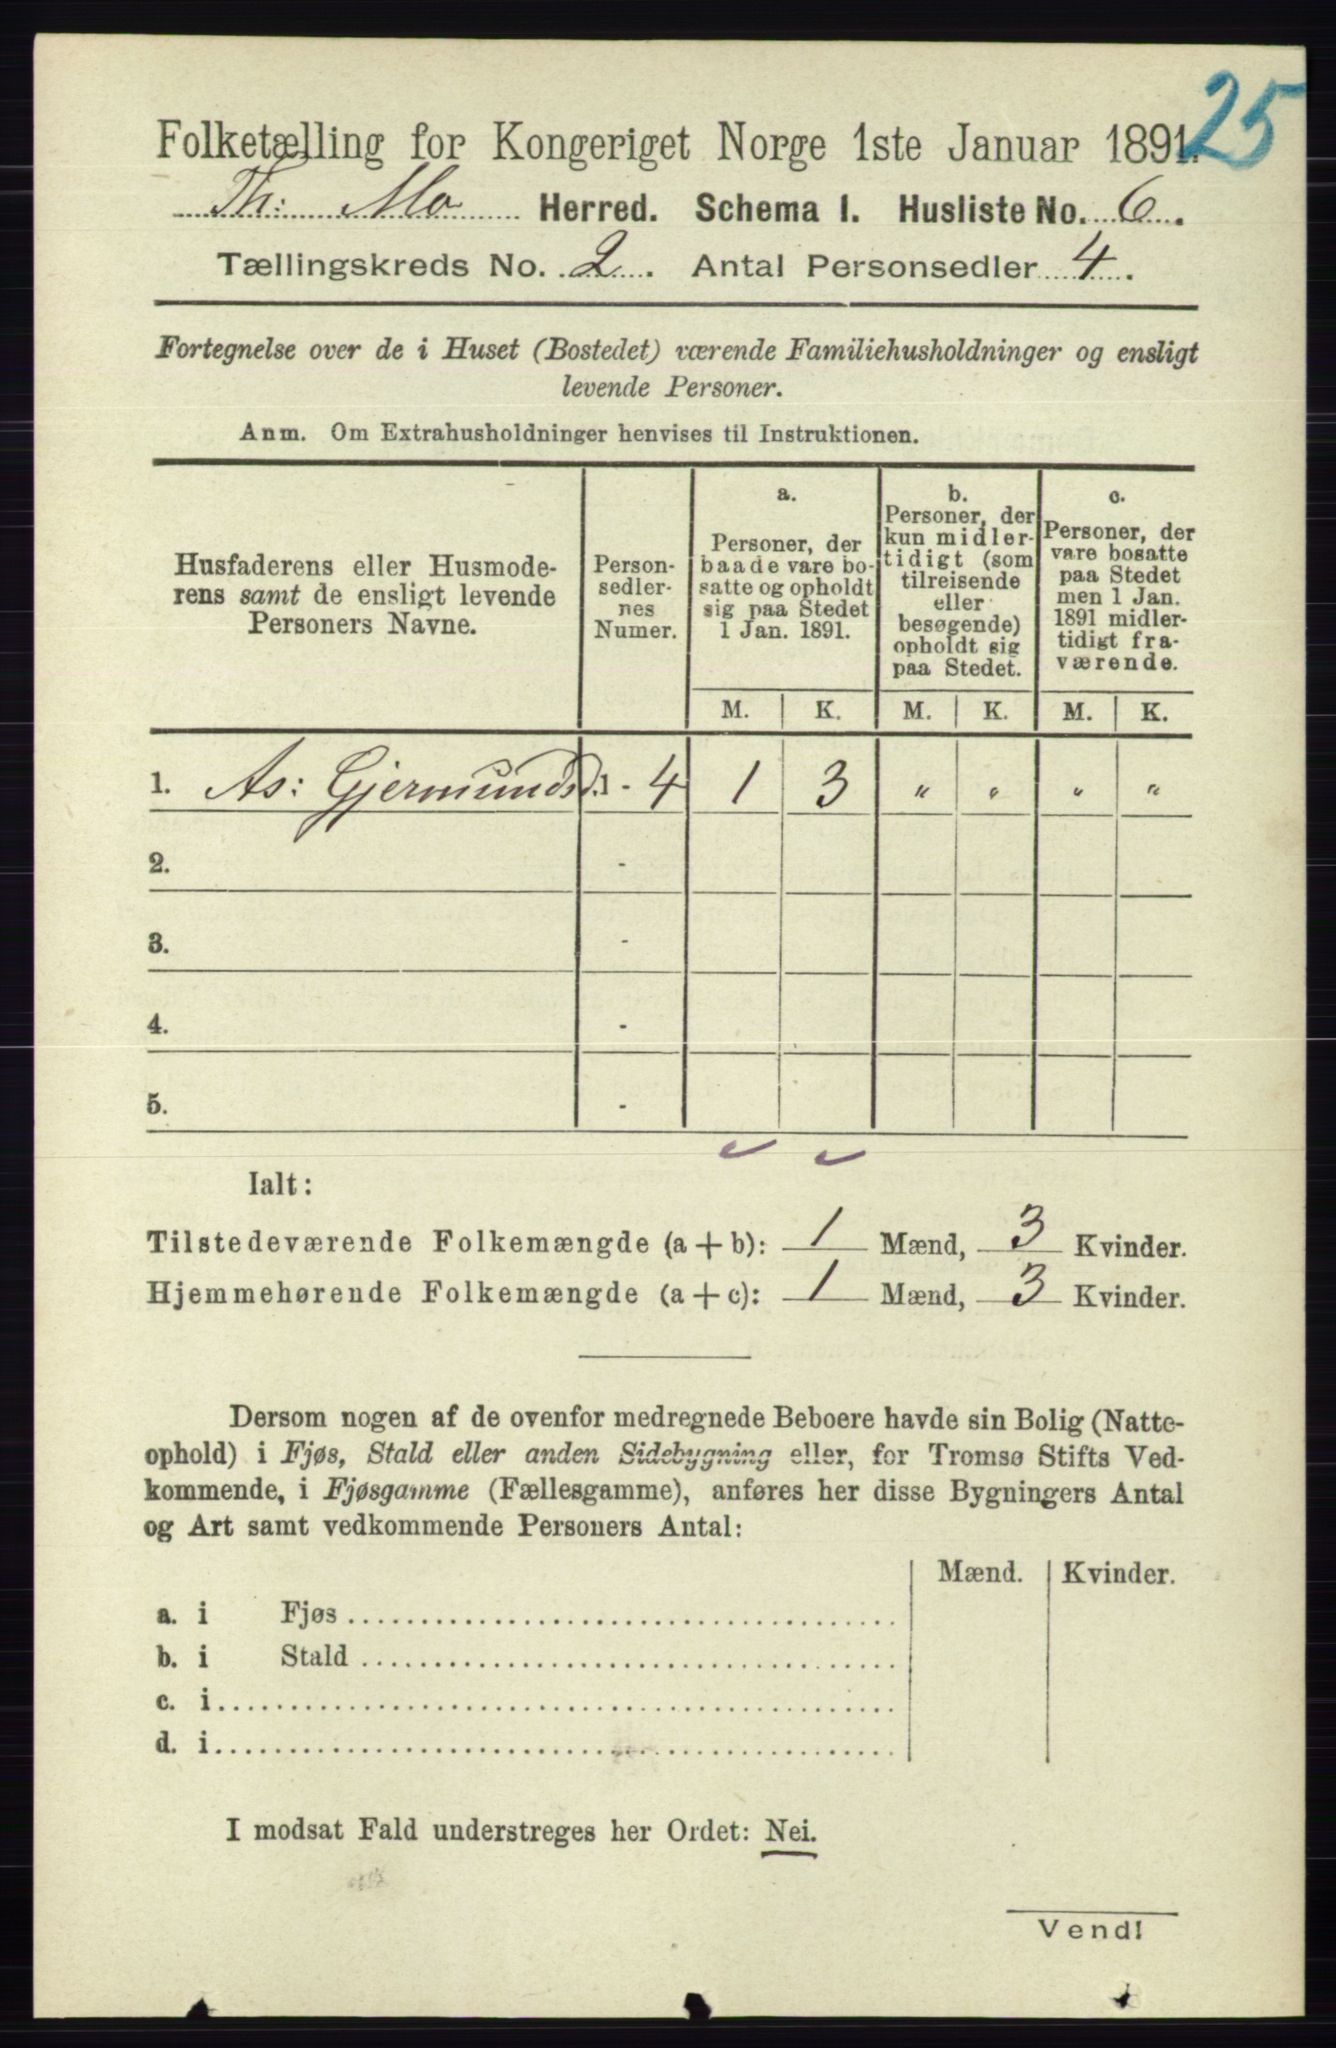 25
Folketælling for Kongeriget Norge 1ste Januar 1891.
Th: Mo Herred. Schema I. Husliste No. 6.
Tællingskreds No. 2. Antal Personsedler 4.
Fortegnelse over de i Huset (Bostedet) værende Familiehusholdninger og ensligt
levende Personer.
Anm. Om Extrahusholdninger henvises til Instruktionen.
Husfaderens eller Husmode-
rens samt de ensligt levende
Personers Navne.
Person-
sedler-
nes
Numer.
a.
Personer, der
baade vare bo-
satte og opholdt
sig paa Stedet
1 Jan. 1891.
b.
Personer, der
kun midler-
tidigt (som
tilreisende
eller
besøgende)
opholdt sig
paa Stedet.
c.
Personer, der
vare bosatte
paa Stedet
men 1 Jan.
1891 midler-
tidigt fra-
værende.
M. K. M. K. M. K.
1. As: Gjermundsd. 1 - 4 1 3 " " " "
2. -
3. -
4. -
5. -
Ialt:
Tilstedeværende Folkemængde (a + b): 1 Mænd, 3 Kvinder.
Hjemmehørende Folkemængde (a + c): 1 Mænd, 3 Kvinder.
Dersom nogen af de ovenfor medregnede Beboere havde sin Bolig (Natte-
ophold) i Fjøs, Stald eller anden Sidebygning eller, for Tromsø Stifts Ved-
kommende, i Fjøsgamme (Fællesgamme), anføres her disse Bygningers Antal
og Art samt vedkommende Personers Antal:
Mænd. Kvinder.
a. i Fjøs
b. i Stald
c. i
d. i
I modsat Fald understreges her Ordet: Nei.
Vend!